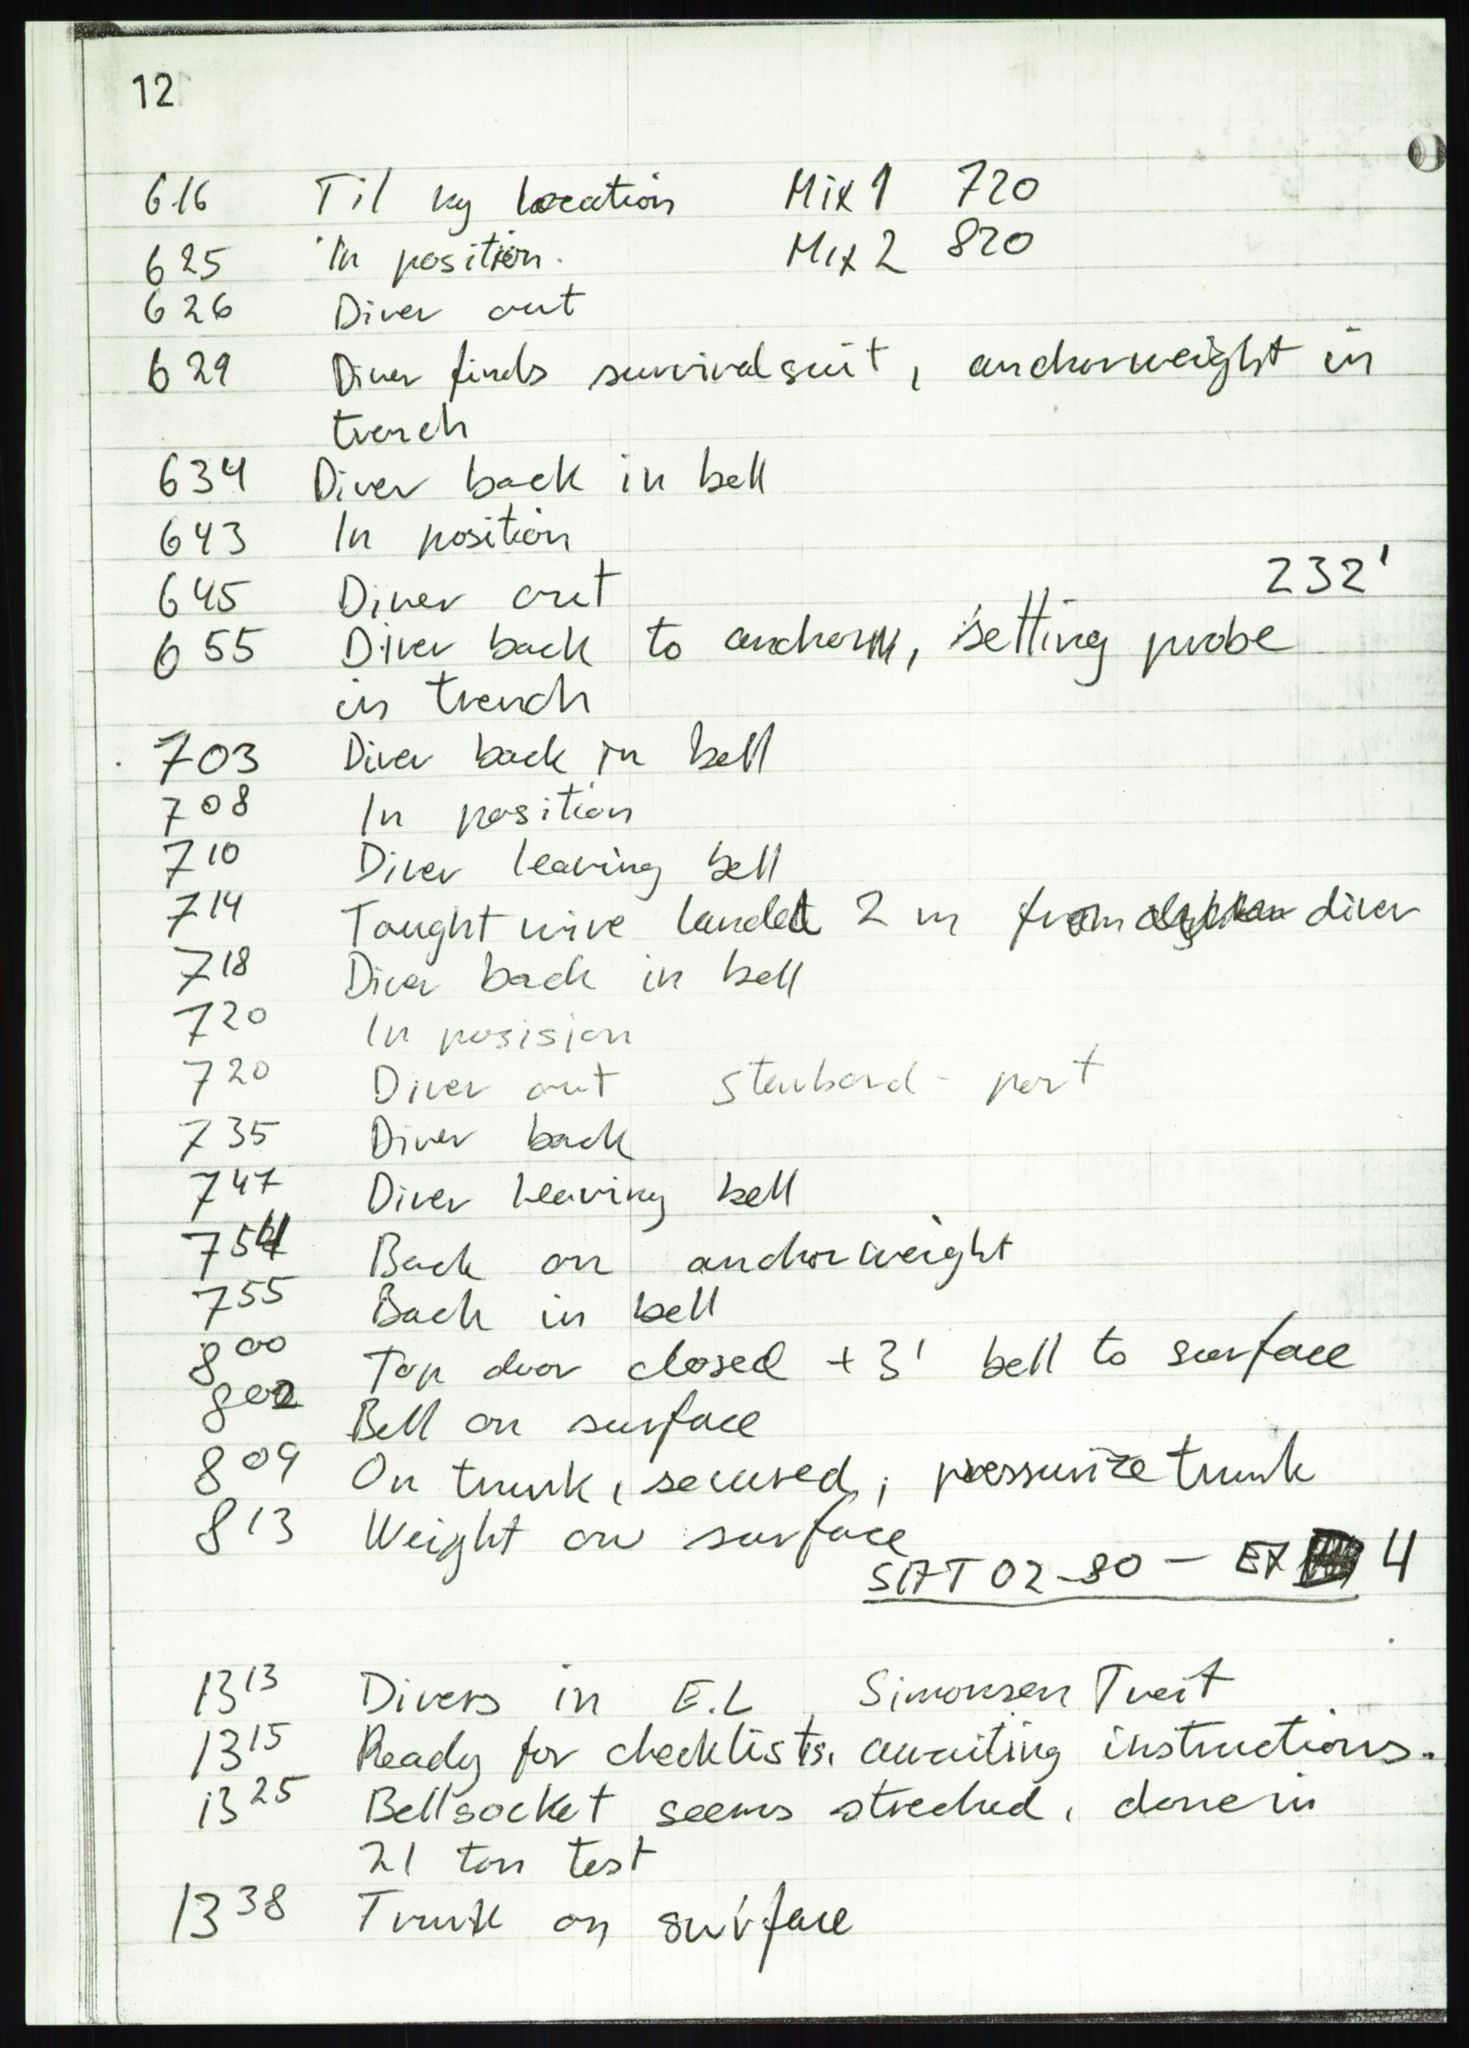 12
616 Til ny location Mix 1 720
625 In position. Mix 2 820
626 Diver out
629 Diver finds survivalsuit, anchorweight in
trench
634 Diver back in bell
643 In position
232'
645 Diver out
655 Diver back to anchor, setting probe
in trench
703 Diver back in bell
708 In position
710 Diver leaving bell
714 Taught wire landet 2 m from diver
718 Diver back in bell
720 In posisjon
720 Diver out starbord - port
735 Diver back
747 Diver leaving bell
754 Back on anchorweight
755 Back in bell
800 Top door closed + 3' bell to surface
802 Bell on surface
809 On trunk, secured, pressurize trunk
813 Weight on surface
SAT 02-80 - EX 4
1313 Divers in E.L Simonsen Tveit
1315 Ready for checklists, awaiting instructions.
1325 Bellsocket seems streched, done in
21 ton test
1338 Trunk on surface